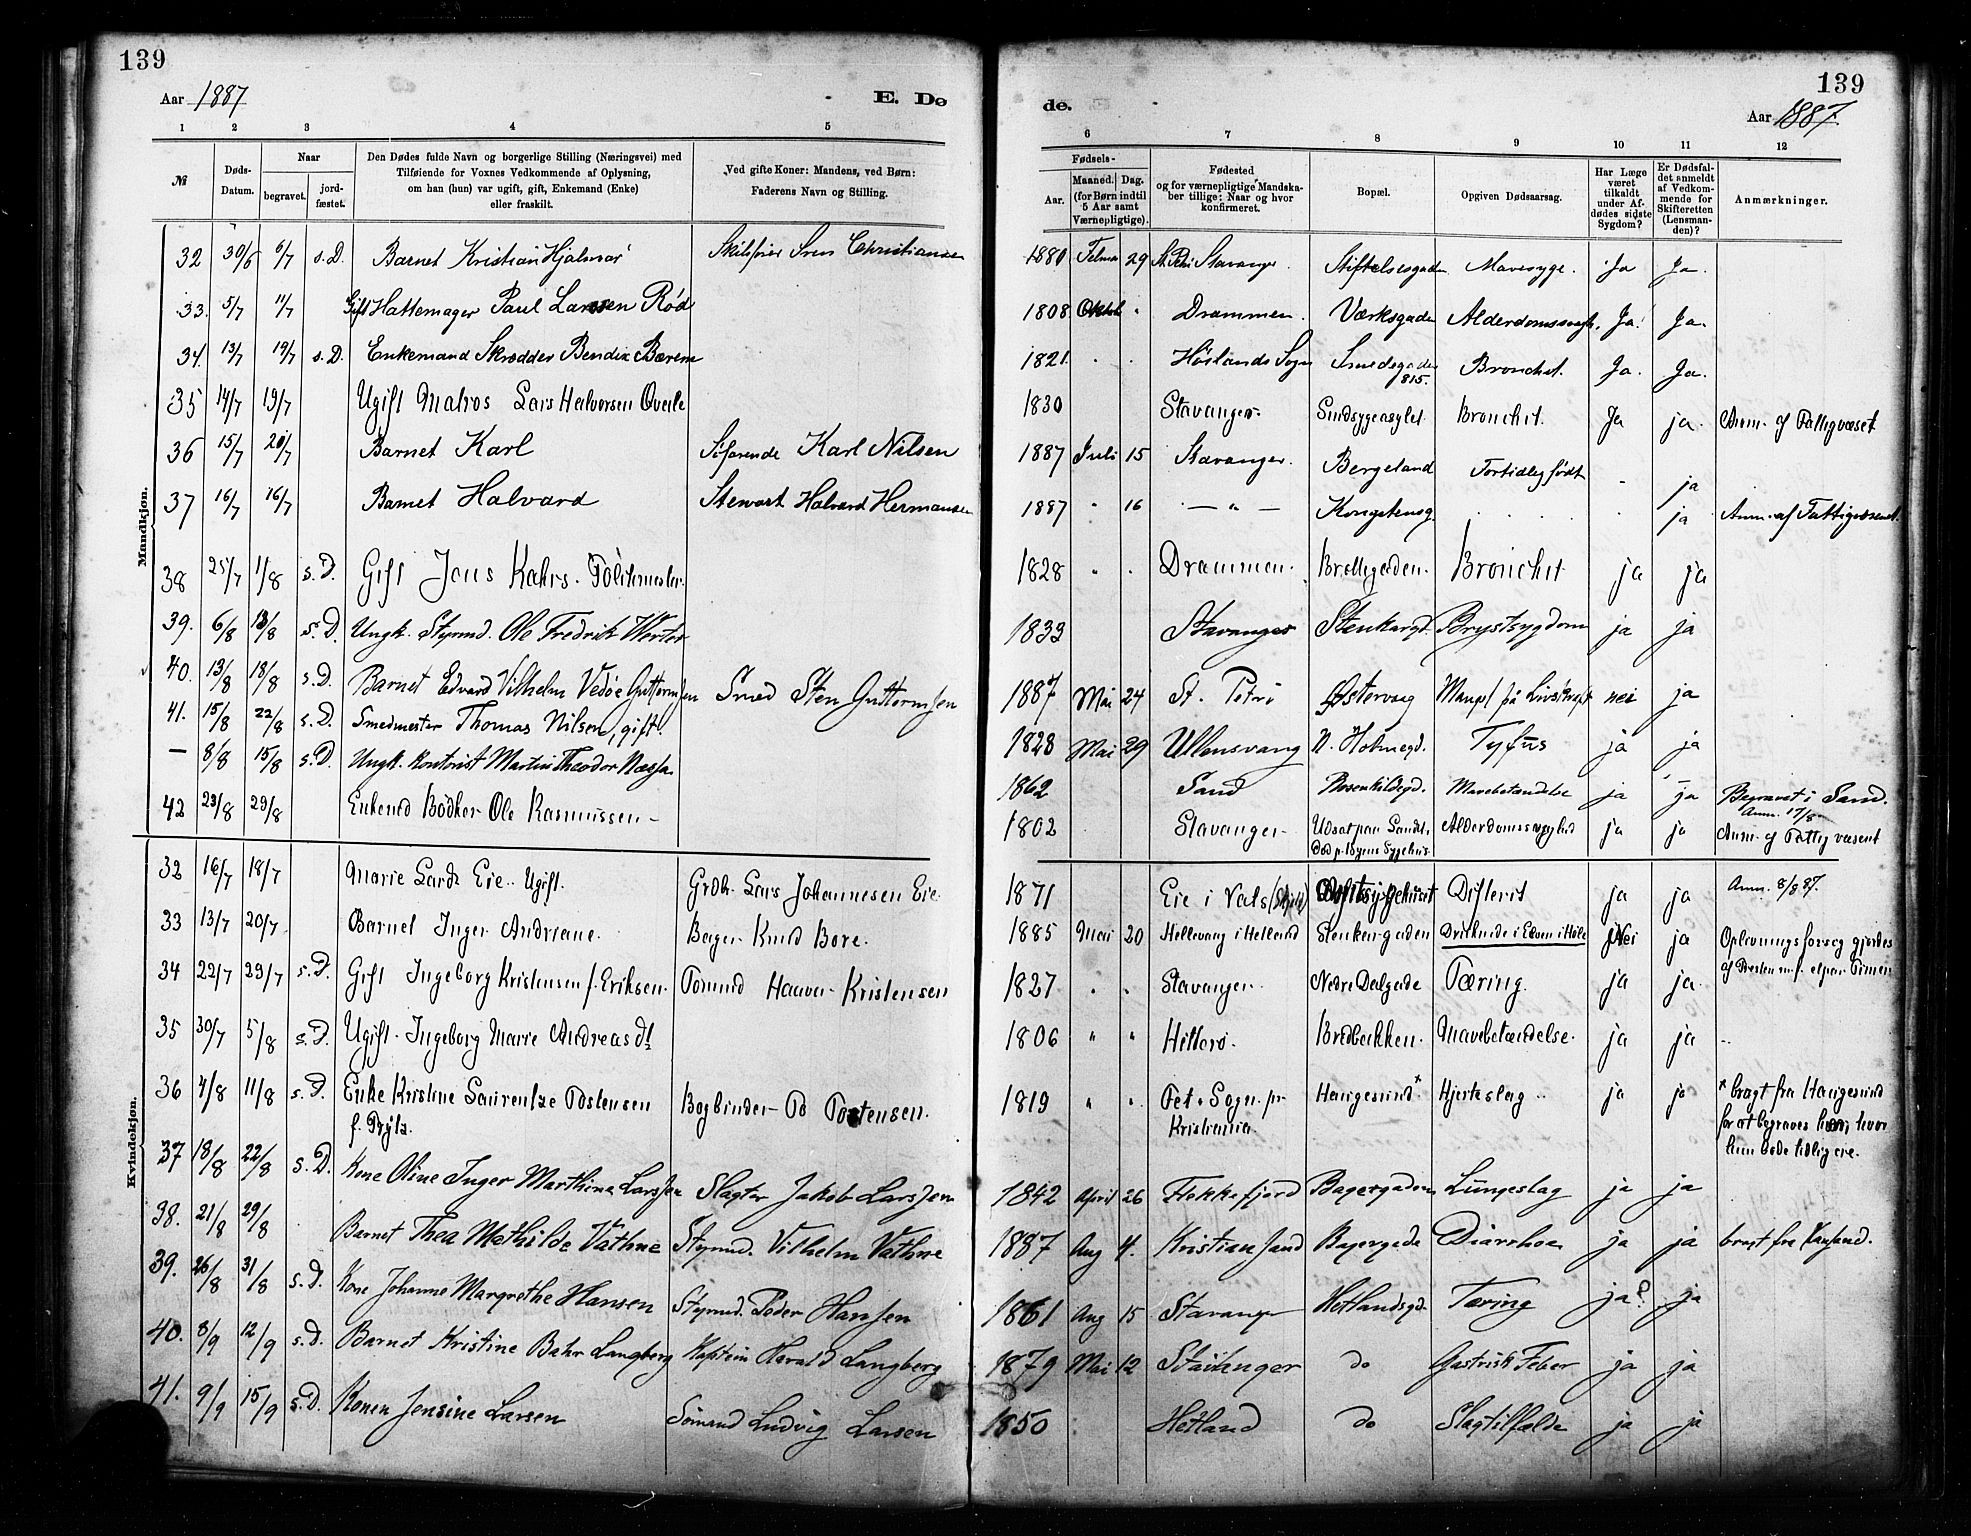 139
Aar 1887
E. Dø
1 2 3 4 5
№
Døds-Datum.
Naar
begravet.
jord-fæstet.
Den Dødes fulde Navn og borgerlige Stilling (Næringsvei) med
Tilføiende for Voxnes Vedkommende af Oplysning,
om han (hun) var ugift, gift, Enkemand (Enke)
eller fraskilt.
Ved gifte Koner: Mandens, ved Børn:
Faderens Navn og Stilling.
Mandkjøn.
32 30/6 6/7 s.D. Barnet Kristian Hjalmar Christiansen
33. 5/7 11/7 Gift Hattemager Paul Larssen Rød
34. 13/7 19/7 s.D. Enkemand Skrædder Bendix Bærem
35 14/7 19/7 Ugift Matros Lars Halvorsen Qvele
36 15/7 20/7 Barnet Karl Søfarende Karl Nilsen
37 16/7 16/7 Barnet Halvard Stewart Halvard Hermansen
38 25/7 1/8 s.D. Gift Jens Kahrs. Politimester.
39. 6/8 13/8 s.D. Ungk. Styrmd. Ole Fredrik
40. 13/8 18/8 s.D. Barnet Edvard Vilhelm Vedøe Guttormsen Smed Sten Guttormsen
41. 15/8 22/8 s.D. Smedmester Thomas Nilsen, gift.
— 8/8 15/8 s.D. Ungk. Kontorist Martin Theodor Næssa
42 23/8 29/8 Enkemd Bødker Ole Rasmussen –
Kvindekjøn.
32 16/7 18/7 Marie Larsd. Eie. Ugift. Grdbr. Lars Johannesen Eie.
33 13/7 20/7 Barnet Inger Andriane. Bager Knud Bore.
34 22/7 29/7 s.D. Gift Ingeborg Kristensen f. Eriksen. Tømmd Haaver Kristensen
35 30/7 5/8 s.D. Ugift. Ingeborg Marie Andreasdt.
36 4/8 11/8 s.D. Enke Kristine Laurentze Tostensen Bogbinder Tostensen.
37 18/8 22/8 s.D. Kone Oline Inger Marthine Larssen Slagter Jakob Larssen
38. 21/8 29/8 Barnet Thea Mathilde Vathne Styrmd. Vilhelm Vathne
39. 26/8 31/8 s.D. Kone Johanne Margrethe Hansen Styrmd. Peder Hansen
40. 8/9 12/9 s.D. Barnet Kristine Bahr Langberg Kaptein Harald Langberg
41. 9/9 15/9 s.D. Konen Jensine Larsen Sømand Ludvig Larsen
de.
139
Aar 1887.
6 7 8 9 10 11 12
Fødsels-
Aar.
Maaned. Dag.
(for Børn indtil
5 Aar samt
Værnepligtige).
Fødested
og for værnepligtige Mandska-
ber tillige: Naar og hvor
konfirmeret.
Bopæl.
Opgiven Dødsaarsag.
Har Læge
været
tilkaldt
under Af-
dødes sidste
Sygdom?
Er Dødsfal-
det anmeldt
af Vedkom-
mende for
Skifteretten
(Lensman-
den)?
Anmærkninger.
1880 29 St. Petri Stavanger. Stiftelsesgaden Mavesyge. Ja Ja.
1808 Oktob " Drammen. Værksgaden Ja. Ja.
1821. Sogn Smedsgaden 815. Bronchit. Ja. Ja.
1830 Stavanger. Sindsygeasylet Bronchit. Ja ja. Anm. af
1887 Juli 15 Stavanger. Bergeland Fortidlig født - ja
1887 " 16 — " — Kongstensg. ja Anm. af Fattigvæsenet.
1828 " . Drammen. Bredegaden. Bronchit ja ja
1833 Stavanger Stenkargd. Brystsygdom ja ja
1887 Mai 24 St. Petri Østervaag Mangel på Livskraft nei ja
1828 Mai 29 Ullensvang N. Holmegd. Tyfus ja ja
1862 Sand Rosenkildegd. Mavebetændelse ja ja Begravet i Sand.
Anm. 17/8
1802 Stavanger Alderdomssvaghed ja ja Anm. af
1871 Eie i Vats Difterit ja ja Anm. 8/8 87.
1885 Mai 20 Hellevang i Hetland Stenkargaden Nei ja Oplivningsforsøg gjordes
1827 " " Stavanger Nedre Dalgade Tæring. ja ja
1806 " " Hitterø. Bredbakken. Mavebetændelse. ja ja
1819 " " Fet Sogn pr. Haugesund x Hjerteslag ja ja x bragt fra Haugesund
Kristiania for at begraves her, hvor
hun
1842 April 26 Flekkefjord Bagergaden Lungeslag ja ja
1887 Aug 4. Kristiansand Bagergade Diarrhoe ja ja bragt fra
1861 Aug 15 Stavanger Hetlandsgd. Tæring ja? ja
1879 Mai 12 Stavanger do Gastrisk Feber ja ja
1850 Hetland do Slagtilfælde ja ja